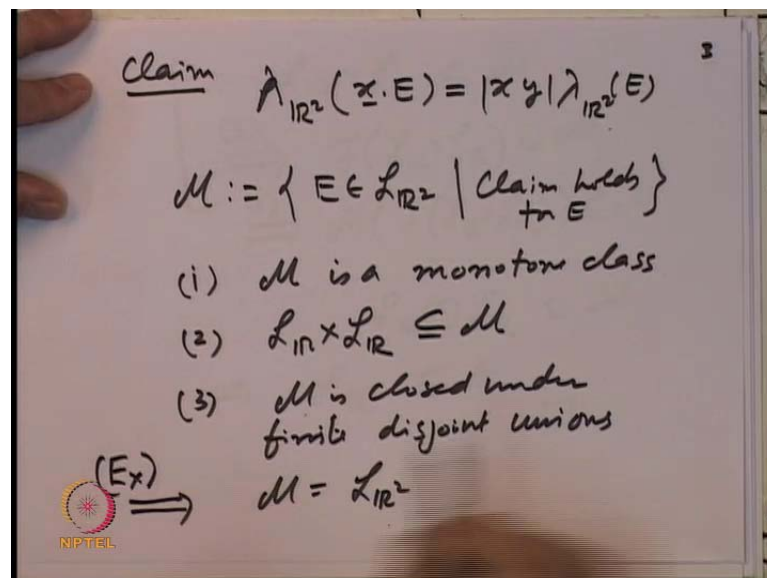 3
Claim λ_{ℝ²}(x̲·E) = |xy| λ_{ℝ²}(E)
M := { E ∈ L_{ℝ²} | Claim holds
for E }
(i) M is a monotone class
(2) L_ℝ × L_ℝ ⊆ M
(3) M is closed under
finite disjoint unions
(Ex)
⟹ M = L_{ℝ²}
NPTEL